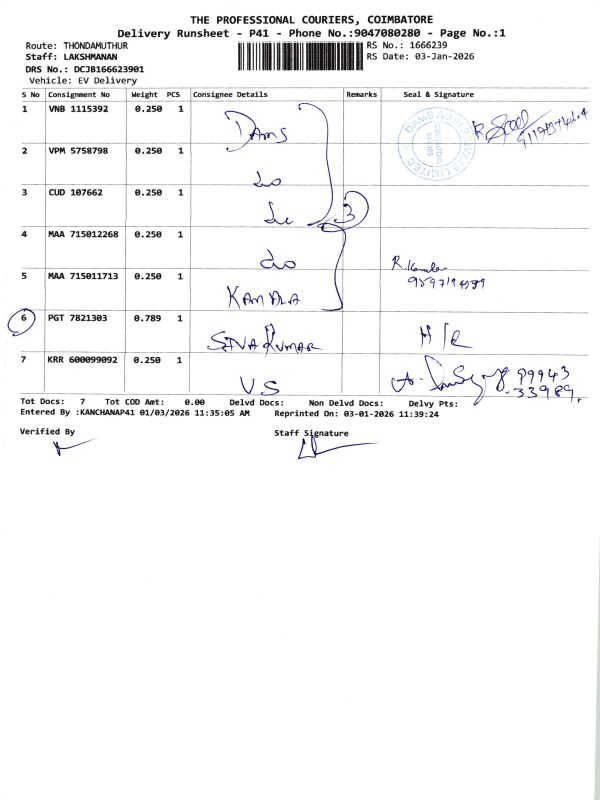 THE PROFESSIONAL COURIERS, COIMBATORE
Delivery Runsheet - P41 - Phone No.:9047080280 - Page No.:1
Route: THONDAMUTHUR RS No.: 1666239
Staff: LAKSHMANAN RS Date: 03-Jan-2026
DRS No.: DCJB166623901
Vehicle: EV Delivery
S No Consignment No Weight PCS Consignee Details Remarks Seal & Signature
1 VNB 1115392 0.250 1 DAMS
2 VPM 5758798 0.250 1 do
3 CUD 107662 0.250 1 do 3
4 MAA 715012268 0.250 1 do
5 MAA 715011713 0.250 1 KAMALA
6 PGT 7821303 0.789 1 SIVA KUMAR H/R
7 KRR 600099092 0.250 1 VS 99943
33989
Tot Docs: 7 Tot COD Amt: 0.00 Delvd Docs: Non Delvd Docs: Delvy Pts:
Entered By :KANCHANAP41 01/03/2026 11:35:05 AM Reprinted On: 03-01-2026 11:39:24
Verified By Staff Signature